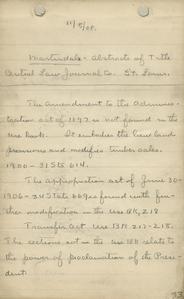 11/5/08.
Martindale - Abstracts of Title
Central Law Journal Co. St. Louis.
The Amendment to the Adminis-
tration act of 1897 is not found in the
Use book. It embodies the lieu land
provisions and modifies timber sales.
1900 - 31 Stat. 614.
The appropriation act of June 30-
1906 - 34 Stat 669 is found with fur-
ther modification in the Use BK, 218
Transfer Act Use BK 217-218.
The sections not in the use BK relate to
the power of proclamation of the Presi-
dent.
33